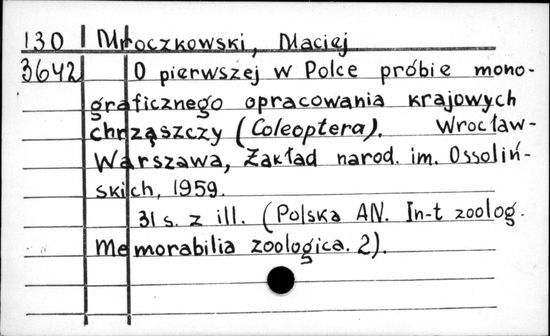 130 Mroczkowski, Maciej
3642 O pierwszej w Polce próbie mono-
graficznego opracowania krajowych
chrząszczy (Coleoptera). Wrocław-
Warszawa, Zakład narod. im. Ossoliń-
skich, 1959.
31 s. z ill. (Polska AN. In-t zoolog.
Memorabilia zoologica. 2).